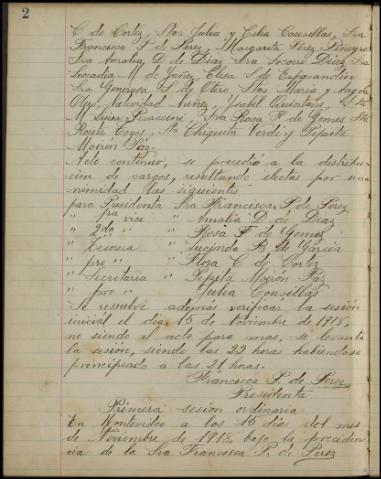 2
C. de Cortez, Stas Julia y Celia Cousillas, Sra
Francisca P. de Perez, Margarita Perez Piñeyro
Sra Amalia D. de Diaz, Sra Socorro Diaz, Sra
Leocadia M. de Jaime, Elisa S. de Esparandieu
Sra Generosa S. de Otero, Stas Maria y Angela
Olgo, Natividad Nuñez, Isabel Quintans, Sta
M. Luisa Peracconi, Sra Rosa F. de Gomes Sta
Rosita Cogos, Sta Chiquita Verdi y Pepita
Moirón Páz.
Acto continuo, se procedió a la distribu-
cion de cargos, resultando electas por una-
nimidad las siguientes
para Presidenta Sra Francisca P. de Pérez
" 1ra vice " Amalia D. de Diaz
" 2da " " Rosa F. de Gomes
" Tesorera " Lucinda B. de Garcia
" pro " " Flora C. de Cortez
" Secretaria " Pepita Moirón Páz
" pro " " Julia Cousillas
Se resuelve además verificar la sesión
inicial el dia 15 de Noviembre de 1918,
no siendo el acto para mas, se levanta
la sesión, siendo las 22 horas habiendose
principiado a las 21 horas.
Francisca P. de Perez
Presidenta
Primera sesión ordinaria
En Montevideo a los 15 dias del mes
de Noviembre de 1918, bajo la presiden-
cia de la Sra Francisca P. de Perez